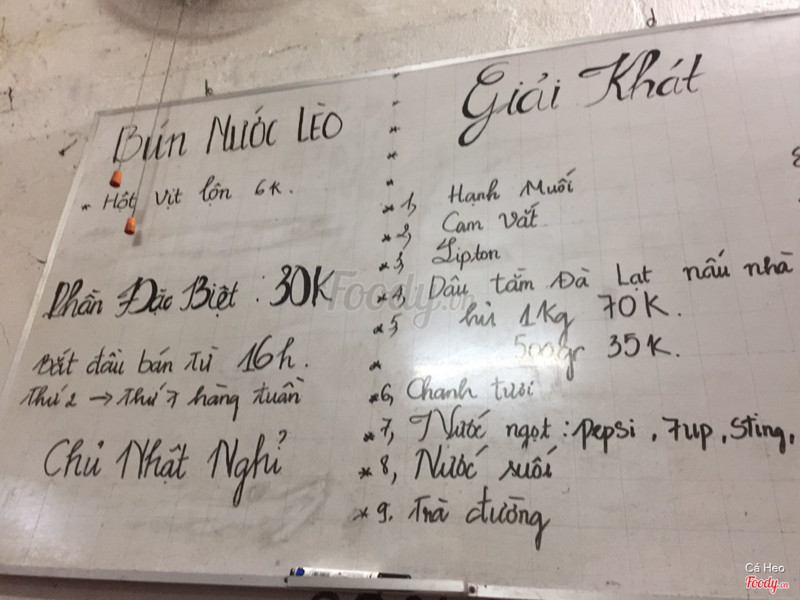 Bún Nước Lèo
* Hột vịt lộn 6K.
Phần Đặc Biệt : 30K
Bắt đầu bán từ 16h.
Thứ 2 → Thứ 7 hàng tuần
Chủ Nhật Nghỉ
Giải Khát
* 1, Hạnh Muối
* 2, Cam Vắt
* 3, Lipton
* 4, Dâu tằm Đà Lạt nấu nhà
* 5 hủ 1Kg 70K.
* 500gr 35K.
* 6, Chanh tươi
* 7, Nước ngọt : Pepsi, 7up, Sting,
* 8, Nước suối
* 9. Trà đường
Foody.vn
Cá Heo
Foody.vn